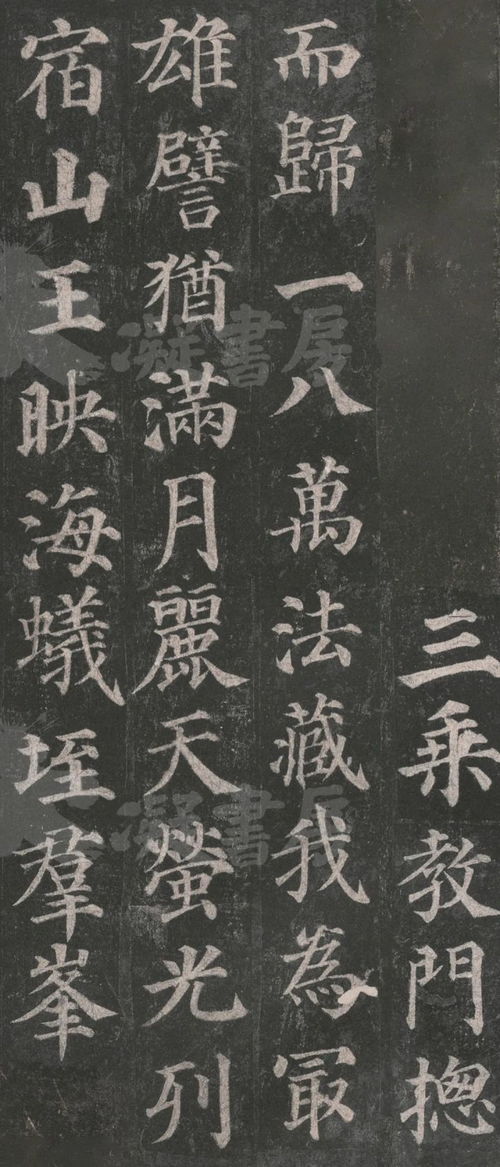 三乗教門揔
而歸一八萬法藏我為冣
雄譬猶滿月麗天螢光列
宿山王映海蟻垤羣峯
凝書房
凝書房